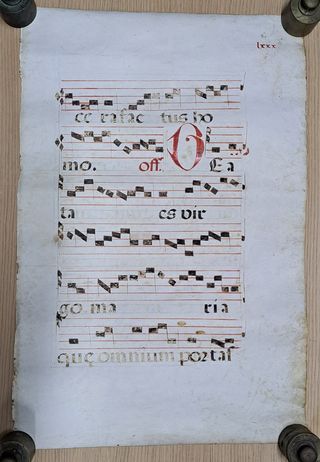 lxxx
ce rafac tus ho
mo. off. B Ea
ta es vir
go ma ria
que omnium portas